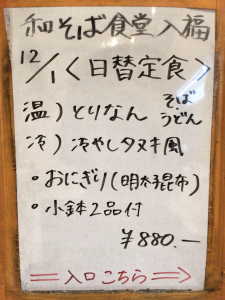 和そば食堂入福
12/1〈日替定食〉
温)とりなん そば うどん
冷)冷やしタヌキ風
・おにぎり(明太昆布)
・小鉢2品付
¥880.—
入口こちら